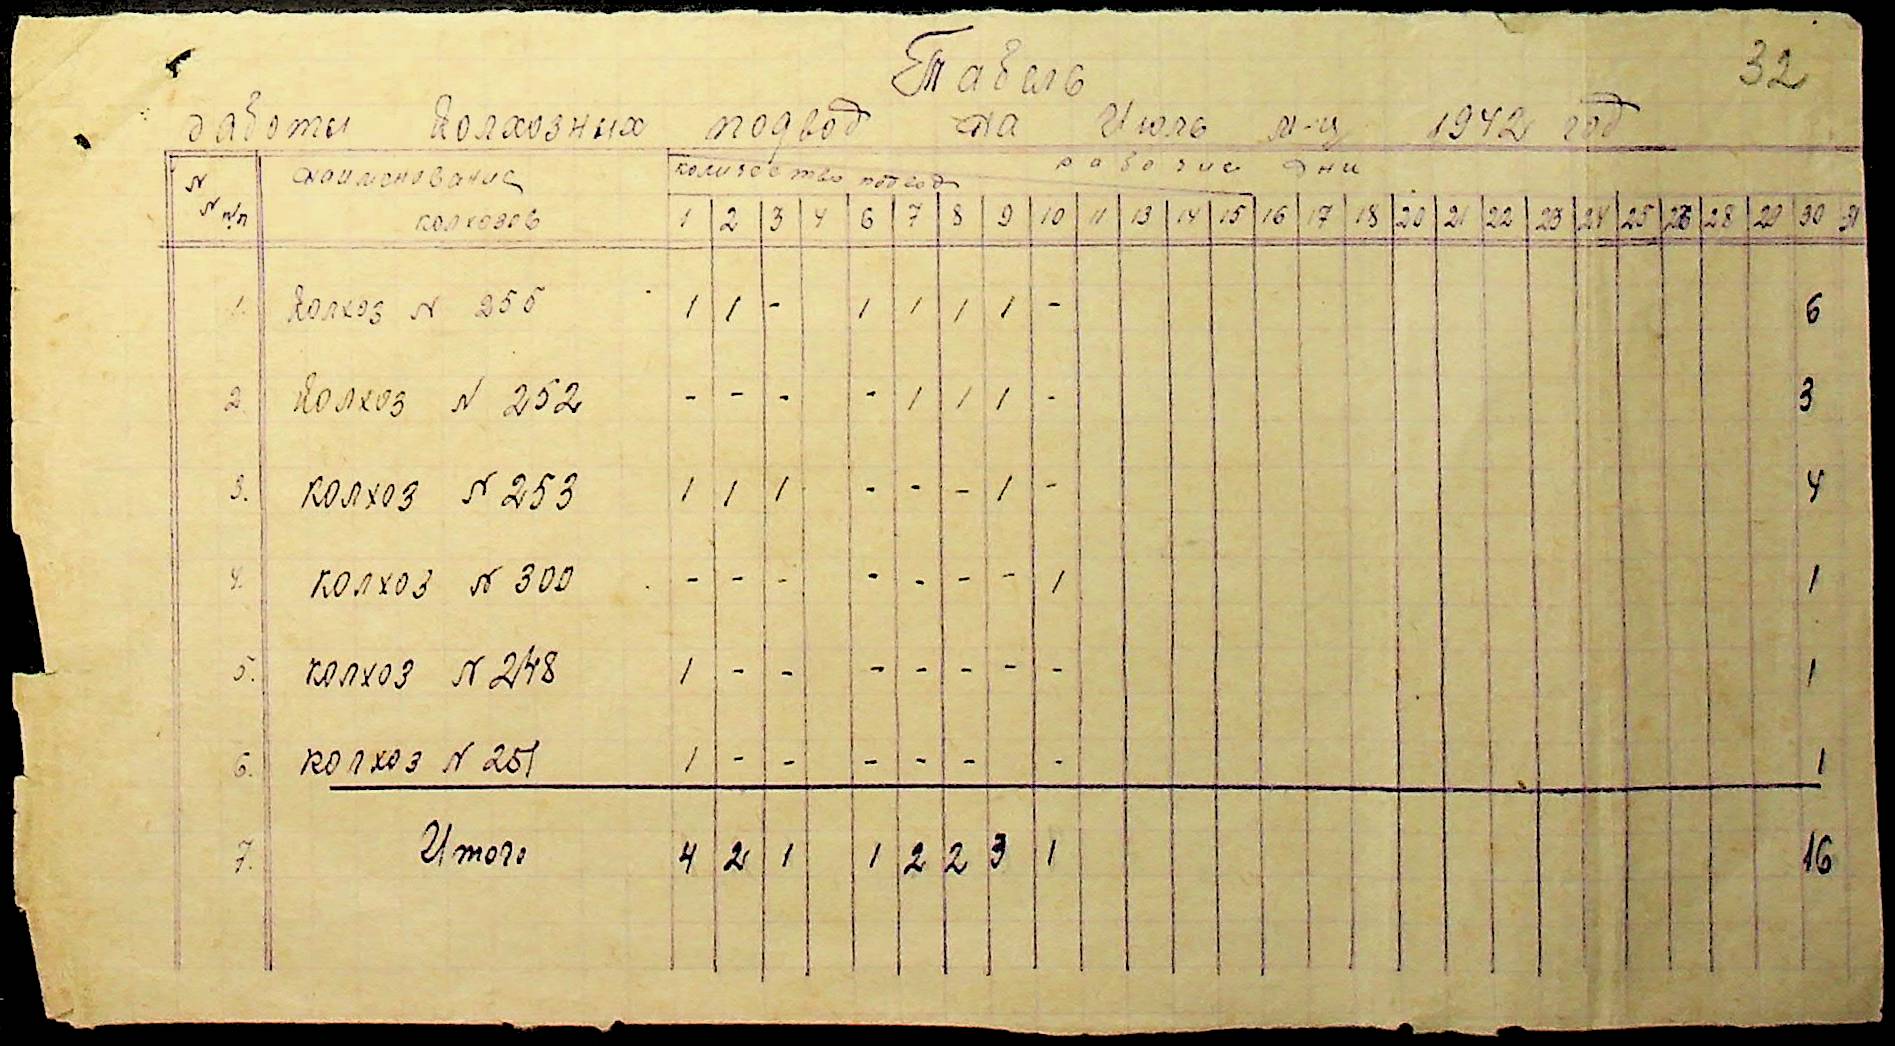 32
Табель
работы колхозных подвод на Июль м-ц 1942 год
N N п/п наименование колхозов количество подвод рабочие дни
1 2 3 4 6 7 8 9 10 11 13 14 15 16 17 18 20 21 22 23 24 25 26 28 29 30 31
1. Колхоз N 255 1 1 - 1 1 1 1 - 6
2. Колхоз N 252 - - - - 1 1 1 - 3
3. колхоз N 253 1 1 1 - - - 1 - 4
4. колхоз N 300 - - - - - - - 1 1
5. колхоз N 248 1 - - - - - - - 1
6. колхоз N 251 1 - - - - - - 1
7. Итого 4 2 1 1 2 2 3 1 16